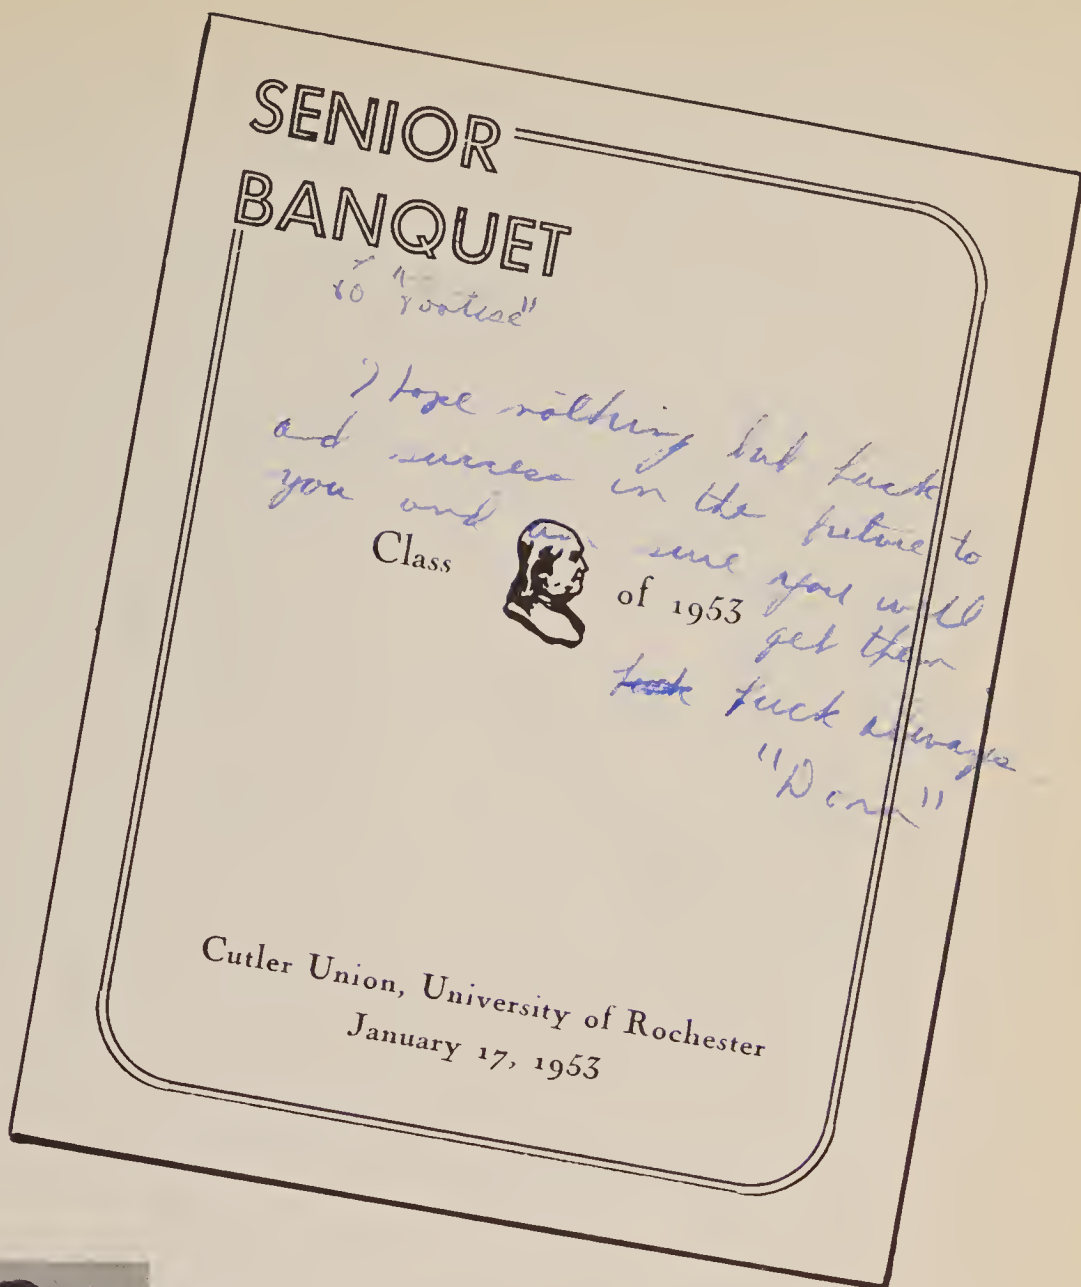 SENIOR
BANQUET
To "Tootsie"
I hope nothing but luck
and success in the future to
you and am sure you will
Class of 1953
get them
luck always
"Donn"
Cutler Union, University of Rochester
January 17, 1953